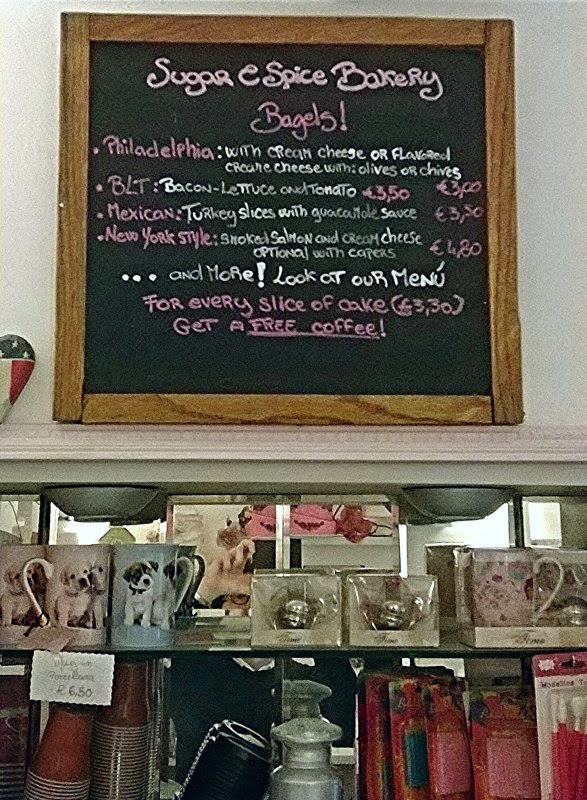 Sugar & Spice Bakery
Bagels!
• Philadelphia: with cream cheese or flavored
creame cheese with: olives or chives €3,00
• BLT: Bacon-Lettuce and Tomato €3,50
• Mexican: Turkey slices with guacamole sauce €3,50
• New York Style: smoked salmon and cream cheese
optional with capers €4,80
... and more! Look at our menú
For every slice of cake (€3,30)
Get a FREE coffee!
Time
Time
Time
porcellana
€ 6,50
Modelling T